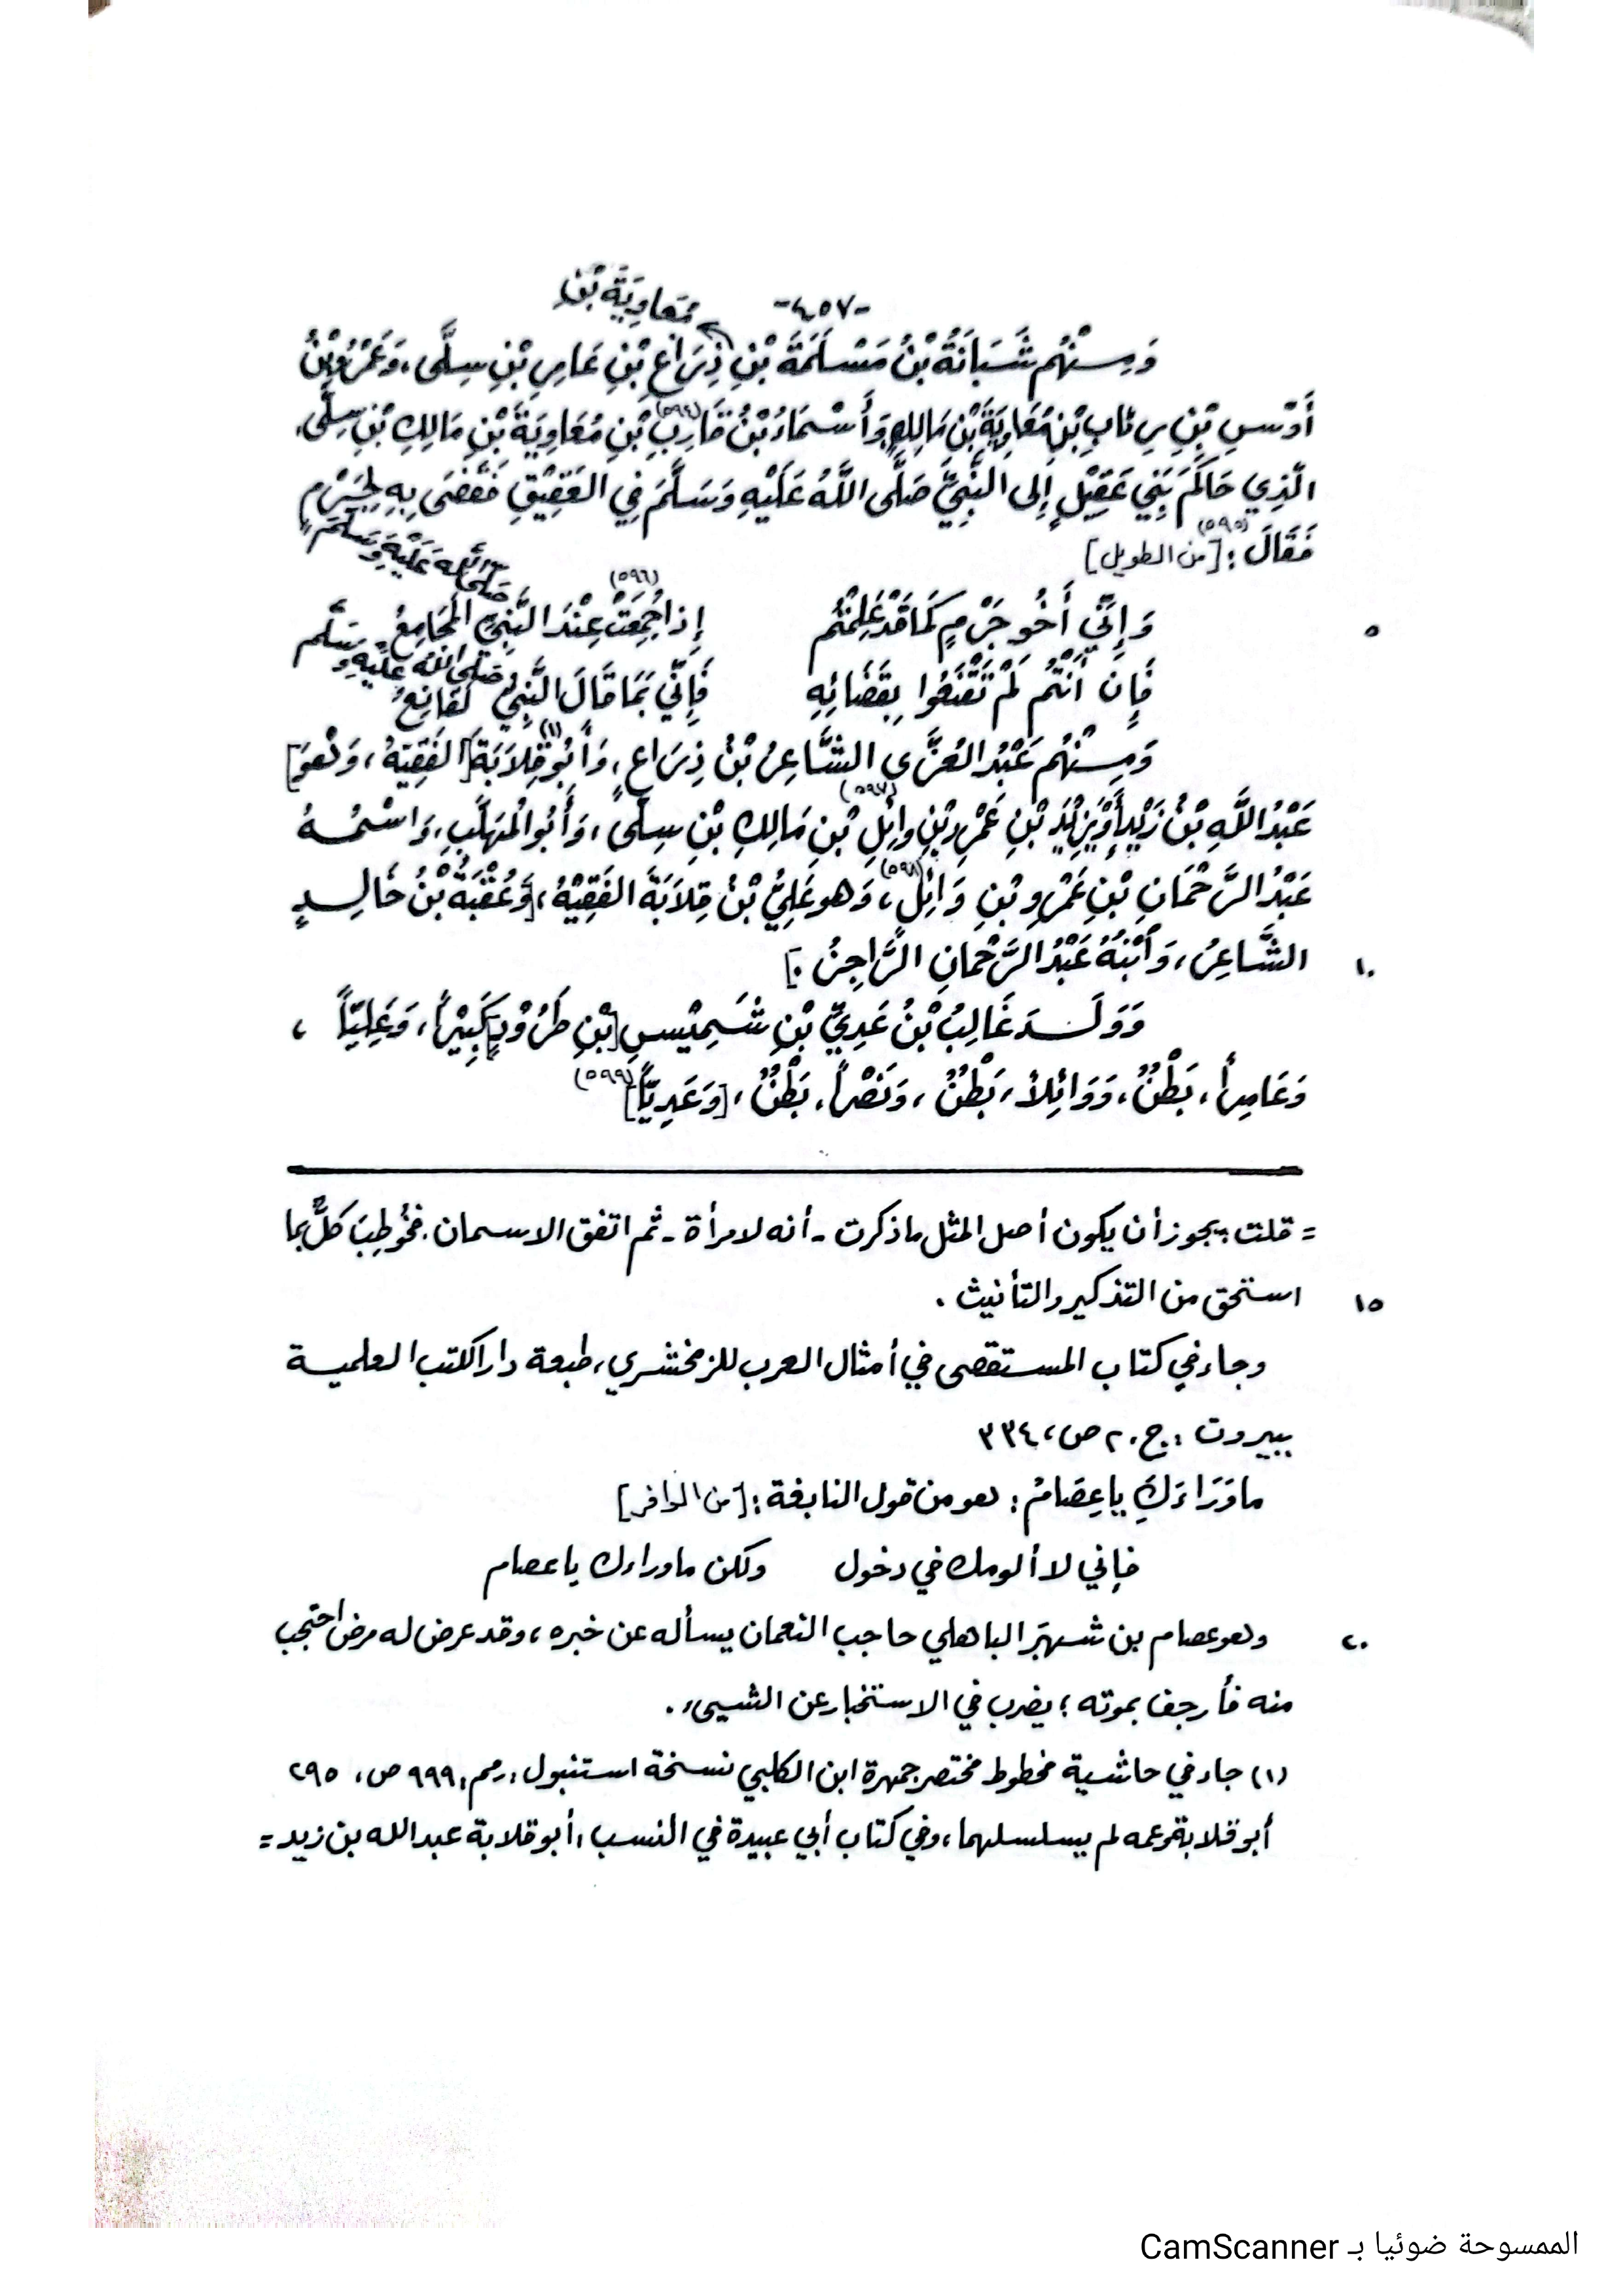 -٤٥٧-
مُعَاوِيَةَ بْنِ
وَمِنْهُم شَبَانَةُ بْنُ مَسْلَمَةَ بْنِ ذِرَاعِ بْنِ عَامِرِ بْنِ سِلَّى، وَعَمْرُو بْنُ
أَوْسِ بْنِ رِئابِ بْنِ مُعَاوِيَةَ بْنِ مَالِكٍ وَأَسْمَاءُ بْنُ قَارِبِ (٥٩٤) بْنِ مُعَاوِيَةَ بْنِ مَالِكِ بْنِ سِلَّى،
الَّذِي حَاكَمَ بَنِي عَقِيْلٍ إِلى النَّبِيِّ صَلَّى اللَّهُ عَلَيْهِ وَسَلَّمَ فِي العَقِيْقِ فَقَضَى بِهِ لِجَرْمٍ
فَقَالَ (٥٩٥): [من الطويل]
٥ وَإِنِّي أَخُو جَرْمٍ كَمَا قَدْ عَلِمْتُمُ إِذا جُمِعَتْ (٥٩٦) عِنْدَ النَّبِيِّ صَلَّى اللَّه عَلَيْهِ وَسَلَّمَ المَجَامِعُ
فَإِن أَنْتُم لَمْ تَقْنَعُوا بِقَضَائِهِ فَإِنِّي بِمَا قَالَ النَّبِيُّ صَلَّى اللَّهُ عَلَيْهِ وَسَلَّم لَقَانِعُ
وَمِنْهُم عَبْدُ العُزَّى الشَّاعِرُ بْنُ ذِرَاعٍ، وَأَبُو قِلاَبَةَ (١) [الفَقِيْهُ، وَهُوَ]
عَبْدُ اللَّهِ بْنُ زَيْدٍ أَوْ يَزِيْدَ بْنِ عَمْرِو بْنِ وائِلِ (٥٩٧) بْنِ مَالِكِ بْنِ سِلَّى، وَأَبُو المُهَلَّبِ، وَاسْمُهُ
عَبْدُ الرَّحْمَانِ بْنِ عَمْرِو بْنِ وَائِلٍ (٥٩٨)، وَهو عَلِيُّ بْنُ قِلاَبَةَ الفَقِيْهُ، [وَعُقْبَةُ بْنُ خَالِدٍ
١٠ الشَّاعِرُ، وَابْنُهُ عَبْدُ الرَّحْمَانِ الرَّاجِزُ.]
وَوَلَدَ غَالِبُ بْنُ عَدِيِّ بْنِ شَمِيْسِ [بْنِ طَرُوْدٍ] كَبِيْراً، وَعَلِيّاً،
وَعَامِراً، بَطْنٌ، وَوَائِلاً، بَطْنٌ، وَنَصْراً، بَطْنٌ، [وَعَدِيّاً] (٥٩٩)
= قلت: يجوز أن يكون أصل المثل ما ذكرت - أنه لامرأة - ثم اتفق الاسمان. فخُوطِبَ كلٌّ بما
١٥ استحق من التذكير والتأنيث.
وجاء في كتاب المستقصى في أمثال العرب للزمخشري، طبعة دار الكتب العلمية
ببيروت: ج. ٢ ص، ٣٣٤
ما وَرَاءَكِ يا عِصَامُ: هو من قول النابغة: [من الوافر]
فإني لا ألومك في دخول ولكن ما وراءك يا عصام
٢٠ وهو عصام بن شهبَر الباهلي حاجب النعمان يسأله عن خبره، وقد عرض له مرض احتجب
منه فأرجف بموته؛ يضرب في الاستخبار عن الشيىء.
(١) جاء في حاشية مخطوط مختصر جمهرة ابن الكلبي نسخة استنبول، رقم: ٩٩٩ ص، ٢٩٥
أبو قلابة وعمه لم يسلسلهما، وفي كتاب أبي عبيدة في النسب، أبو قلابة عبد الله بن زيد =
الممسوحة ضوئيا بـ CamScanner